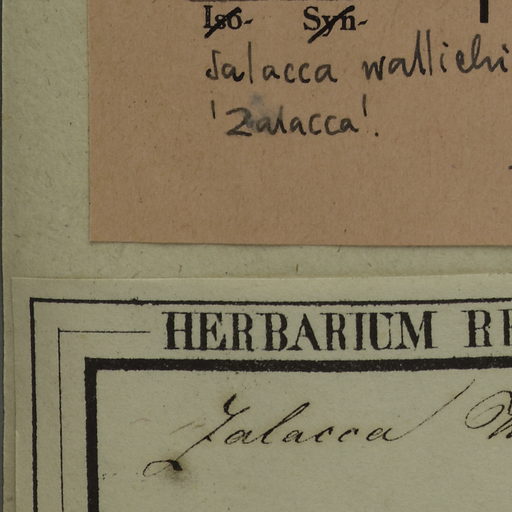 Iso- Syn-
Salacca wallichi
'Zalacca'.
HERBARIUM
Zalacca